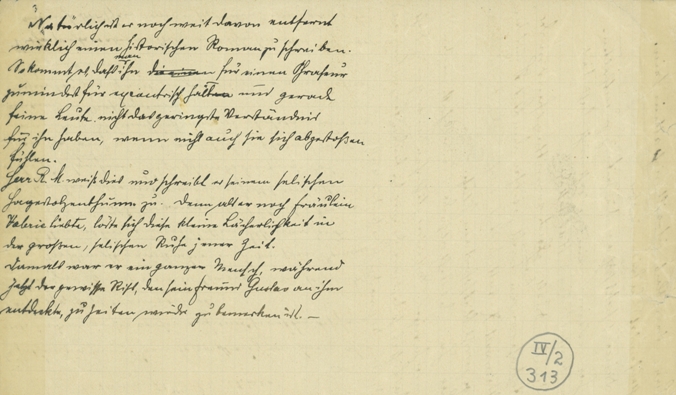 Natürlich ist er noch weit davon entfernt
wirklich einen historischen Roman zu schreiben.
So kommt es, daß man ihn die einen für einen Phraseur
zumindest für exzentrisch halten und gerade
feine Leute nicht das geringste Verständnis
für ihn haben, wenn nicht auch sie sich abgestoßen
fühlen.
Herr R. M. weiß dies und schreibt es seinem seelischen
Hagestolzenthume zu. Denn als er noch Fräulein
Valerie liebte, löste sich diese kleine Lächerlichkeit in
der großen, seelischen Ruhe jener Zeit.
Damals war er ein ganzer Mensch, während
jetzt der gewisse Riß, den sein Freund Gustav an ihm
entdeckte, zu Zeiten wieder zu bemerken ist. —
IV/2
313